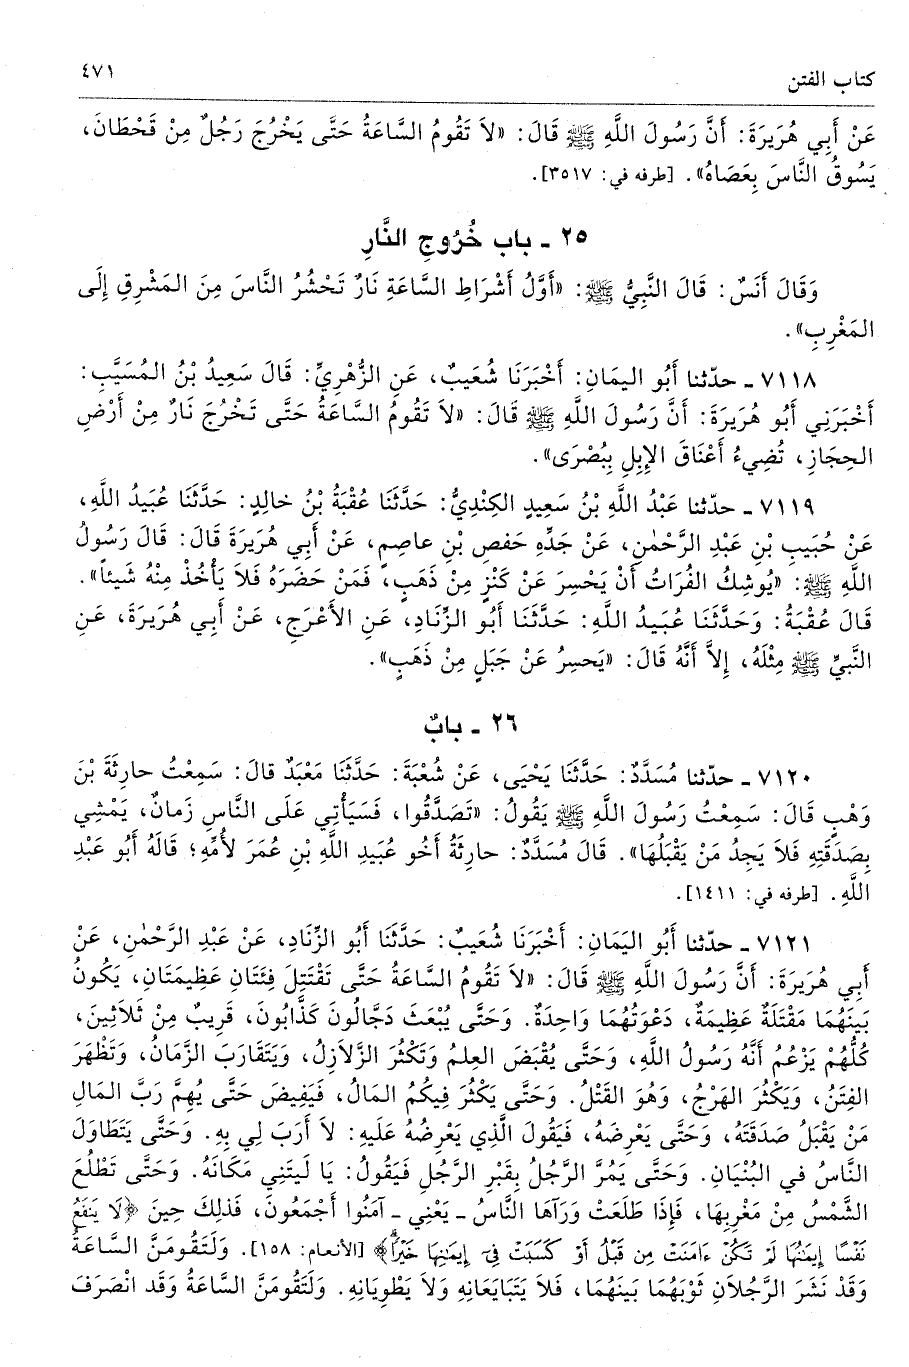 كتاب الفتن ٤٧١
عَنْ أَبِي هُرَيرَةَ: أَنَّ رَسُولَ اللَّهِ ﷺ قَالَ: «لاَ تَقُومُ السَّاعَةُ حَتَّى يَخْرُجَ رَجُلٌ مِنْ قَحْطَانَ،
يَسُوقُ النَّاسَ بِعَصَاهُ». [طرفه في: ٣٥١٧].
٢٥ ـ باب خُرُوجِ النَّارِ
وَقَالَ أَنَسٌ: قَالَ النَّبِيُّ ﷺ: «أَوَّلُ أَشْرَاطِ السَّاعَةِ نَارٌ تَحْشُرُ النَّاسَ مِنَ المَشْرِقِ إِلَى
المَغْرِبِ».
٧١١٨ ـ حدّثنا أَبُو اليَمانِ: أَخْبَرَنَا شُعَيبٌ، عَنِ الزُّهْرِيِّ: قَالَ سَعِيدُ بْنُ المُسَيَّبِ:
أَخْبَرَنِي أَبُو هُرَيرَةَ: أَنَّ رَسُولَ اللَّهِ ﷺ قَالَ: «لاَ تَقُومُ السَّاعَةُ حَتَّى تَخْرُجَ نَارٌ مِنْ أَرْضِ
الحِجَازِ، تُضِيءُ أَعْنَاقَ الإِبِلِ بِبُصْرَى».
٧١١٩ ـ حدّثنا عَبْدُ اللَّهِ بْنُ سَعِيدٍ الكِنْدِيُّ: حَدَّثَنَا عُقْبَةُ بْنُ خالِدٍ: حَدَّثَنَا عُبَيدُ اللَّهِ،
عَنْ خُبَيبِ بْنِ عَبْدِ الرَّحْمٰنِ، عَنْ جَدِّهِ حَفصِ بْنِ عاصِمٍ، عَنْ أَبِي هُرَيرَةَ قَالَ: قَالَ رَسُولُ
اللَّهِ ﷺ: «يُوشِكُ الفُرَاتُ أَنْ يَحْسِرَ عَنْ كَنْزٍ مِنْ ذَهَبٍ، فَمَنْ حَضَرَهُ فَلاَ يَأْخُذْ مِنْهُ شَيئاً».
قَالَ عُقْبَةُ: وَحَدَّثَنَا عُبَيدُ اللَّهِ: حَدَّثَنَا أَبُو الزِّنَادِ، عَنِ الأَعْرَجِ، عَنْ أَبِي هُرَيرَةَ، عَنِ
النَّبِيِّ ﷺ مِثْلَهُ، إِلاَّ أَنَّهُ قَالَ: «يَحسِرُ عَنْ جَبَلٍ مِنْ ذَهَبٍ».
٢٦ ـ بابٌ
٧١٢٠ ـ حدّثنا مُسَدَّدٌ: حَدَّثَنَا يَحْيَى، عَنْ شُعْبَةَ: حَدَّثَنَا مَعْبَدٌ قالَ: سَمِعْتُ حارِثَةَ بْنَ
وَهْبٍ قَالَ: سَمِعْتُ رَسُولَ اللَّهِ ﷺ يَقُولُ: «تَصَدَّقُوا، فَسَيَأْتِي عَلَى النَّاسِ زَمانٌ، يَمْشِي
بِصَدَقَتِهِ فَلاَ يَجِدُ مَنْ يَقْبَلُهَا». قَالَ مُسَدَّدٌ: حارِثَةُ أَخُو عُبَيدِ اللَّهِ بْنِ عُمَرَ لأُمِّهِ؛ قالَهُ أَبُو عَبْدِ
اللَّهِ. [طرفه في: ١٤١١].
٧١٢١ ـ حدّثنا أَبُو اليَمَانِ: أَخْبَرَنَا شُعَيبٌ: حَدَّثَنَا أَبُو الزِّنَادِ، عَنْ عَبْدِ الرَّحْمٰنِ، عَنْ
أَبِي هُرَيرَةَ: أَنَّ رَسُولَ اللَّهِ ﷺ قَالَ: «لاَ تَقُومُ السَّاعَةُ حَتَّى تَقْتَتِلَ فِئَتَانِ عَظِيمَتَانِ، يَكُونُ
بَينَهُمَا مَقْتَلَةٌ عَظِيمَةٌ، دَعْوَتُهُمَا وَاحِدَةٌ. وَحَتَّى يُبْعَثَ دَجَّالُونَ كَذَّابُونَ، قَرِيبٌ مِنْ ثَلاَثِينَ،
كُلُّهُمْ يَزْعُمُ أَنَّهُ رَسُولُ اللَّهِ، وَحَتَّى يُقْبَضَ العِلمُ وَتَكْثُرَ الزَّلاَزِلُ، وَيَتَقَارَبَ الزَّمَانُ، وَتَظْهَرَ
الفِتَنُ، وَيَكْثُرَ الهَرْجُ، وَهُوَ القَتْلُ. وَحَتَّى يَكْثُرَ فِيكُمُ المَالُ، فَيَفِيضَ حَتَّى يُهِمَّ رَبَّ المَالِ
مَنْ يَقْبَلُ صَدَقَتَهُ، وَحَتَّى يَعْرِضَهُ، فَيَقُولَ الَّذِي يَعْرِضُهُ عَلَيهِ: لاَ أَرَبَ لِي بِهِ. وَحَتَّى يَتَطَاوَلَ
النَّاسُ في البُنْيَانِ. وَحَتَّى يَمُرَّ الرَّجُلُ بِقَبْرِ الرَّجُلِ فَيَقُولُ: يَا لَيتَنِي مَكَانَهُ. وَحَتَّى تَطْلُعَ
الشَّمْسُ مِنْ مَغْرِبِهَا، فَإِذَا طَلَعَتْ وَرَآهَا النَّاسُ ـ يَعْنِي ـ آمَنُوا أَجْمَعُونَ، فَذلِكَ حِينَ ﴿لَا يَنفَعُ
نَفْسًا إِيمَٰنُهَا لَمْ تَكُنْ ءَامَنَتْ مِن قَبْلُ أَوْ كَسَبَتْ فِيٓ إِيمَٰنِهَا خَيْرًا﴾ [الأنعام: ١٥٨]. وَلَتَقُومَنَّ السَّاعَةُ
وَقَدْ نَشَرَ الرَّجُلاَنِ ثَوْبَهُمَا بَينَهُمَا، فَلاَ يَتَبَايَعَانِهِ وَلاَ يَطْوِيَانِهِ. وَلَتَقُومَنَّ السَّاعَةُ وَقَد انْصَرَفَ